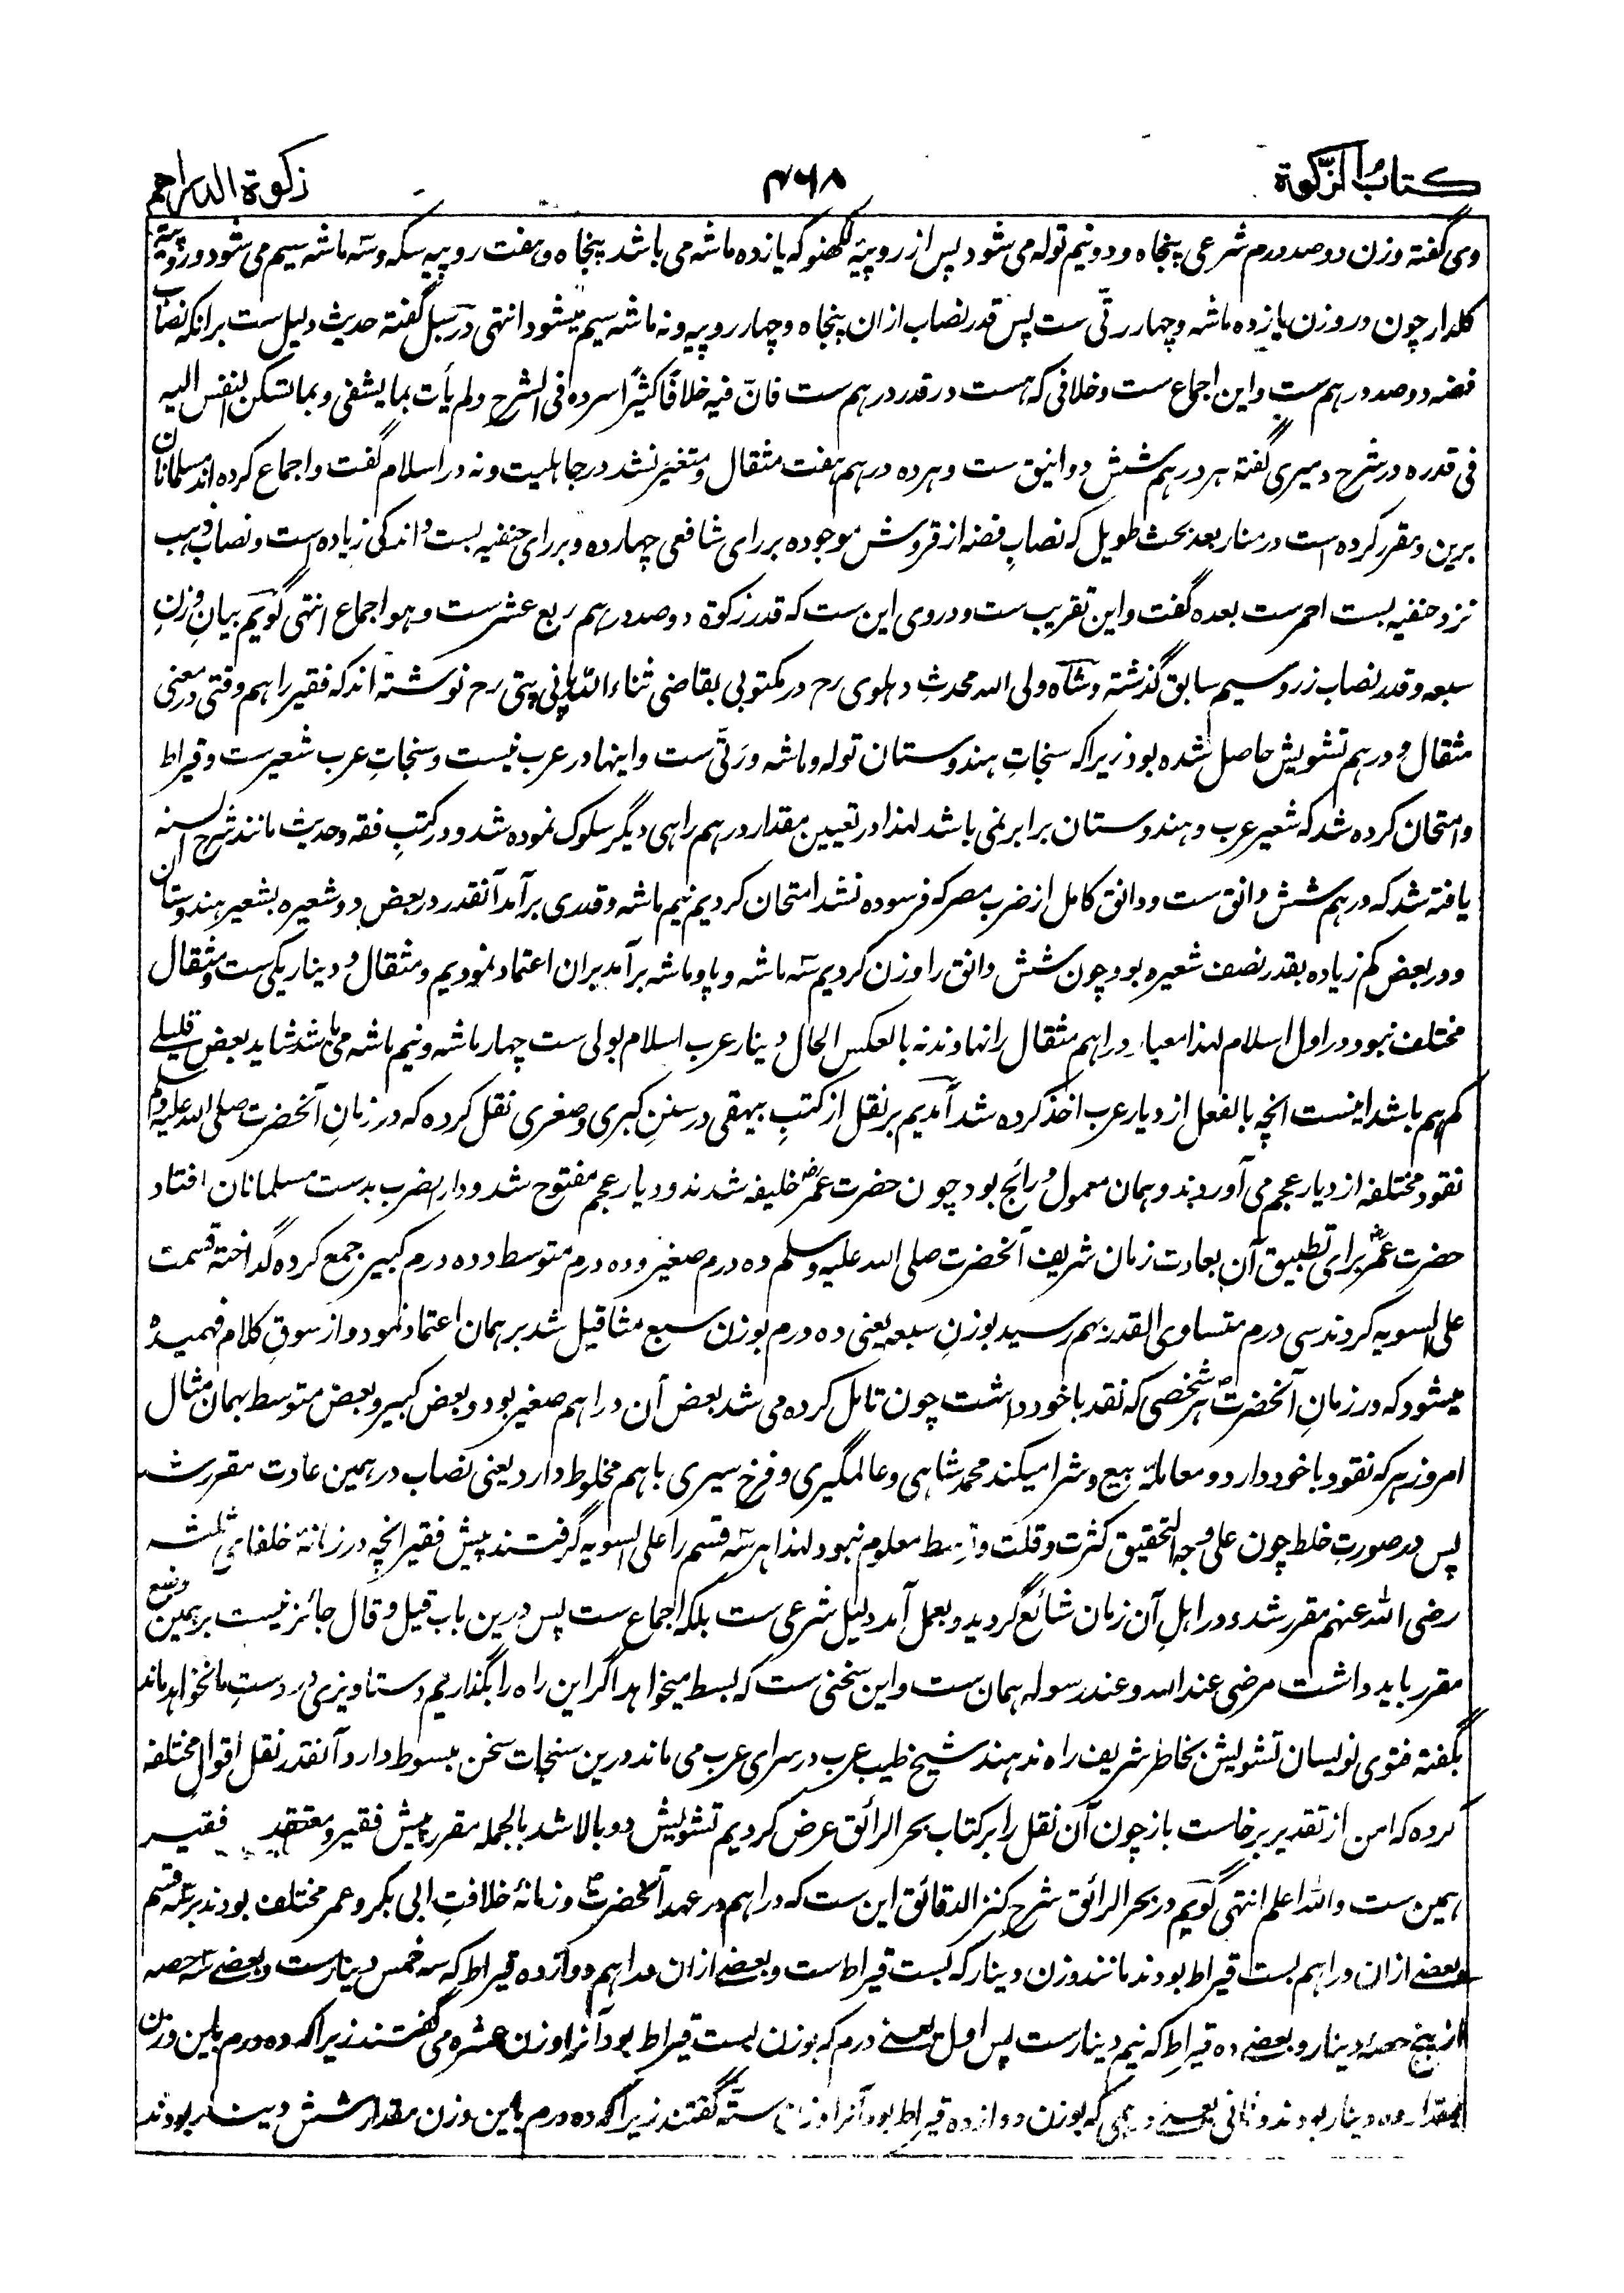 کتاب الزکوة ۴۶۸ زکوة الدراهم
وی گفته وزن دو صد درم شرعی پنجاه و دو نیم توله می شود پس از روپیۀ لکهنو که یازده ماشه می باشد پنجاه و هفت روپیه سکه و سه ماشه سیم می شود و روپیۀ
کلدار چون در وزن یازده ماشه و چهار رتّی ست پس قدر نصاب ازان پنجاه و چهار روپیه و نه ماشه سیم میشود انتهی در سبل گفته حدیث دلیل ست برانکه نصاب
فضه دو صد درهم ست و این اجماع ست و خلافی که هست در قدر درهم ست فانّ فیه خلافًا کثیرًا سرده فی الشرح ولم یأت بما یشفی و بما تسکن النفس الیه
فی قدره در شرح دمیری گفتۀ هر درهم شش دوانیق ست و هر ده درهم هفت مثقال و متغیر نشد در جاهلیت و نه در اسلام گفت و اجماع کرده اند مسلمانان
برین و مقرر کرده است در منار بعد بحث طویل که نصابِ فضه از قروش موجوده بر رای شافعی چهارده و بر رای حنفیه بست و اندکی زیاده است و نصاب ذهب
نزد حنفیه بست احمرست بعده گفت و این تقریب ست و در وی این ست که قدر زکوة دو صد درهم ربع عشر ست و هو اجماع انتهی گویم بیانِ وزنِ
سبعه و قدر نصاب زر و سیم سابق گذشته و شاه ولی الله محدثِ دهلوی رح در مکتوبی بقاضی ثناء الله پانی پتی رح نوشته اند که فقیر را هم وقتی در معنی
مثقال و درهم تشویش حاصل شده بود زیرا که سنجاتِ هندوستان توله و ماشه و رَتّی ست و اینها در عرب نیست و سنجاتِ عرب شعیرست و قیراط
و امتحان کرده شد که شعیر عرب و هندوستان برابر نمی باشد لهذا در تعیین مقدار درهم راهی دیگر سلوک نموده شد و در کتبِ فقه و حدیث مانند شرح السنه
یافته شد که درهم شش دانق ست و دانق کامل از ضرب مصر که فرسوده نشد امتحان کردیم نیم ماشه و قدری برآمد آنقدر در بعض دو شعیره بشعیر هندوستان
و در بعض کم زیاده بقدر نصف شعیره بود چون شش دانق را وزن کردیم سه ماشه و پاو ماشه برآمد بران اعتماد نمودیم و مثقال و دینار یکی ست و مثقال
مختلف نبود در اول اسلام لهذا معیار دراهم مثقال را نهادند نه بالعکس الحال دینار عرب اسلام بولی ست چهار ماشه و نیم ماشه می باشد شاید بعض قلیلی
کم هم باشد اینست انچه بالفعل از دیار عرب اخذ کرده شد آمدیم بر نقل از کتبِ بیهقی در سننِ کبری و صغری نقل کرده که در زمانِ آنحضرت صلی الله علیه وسلم
نقود مختلفه از دیار عجم می آوردند و همان معمول و رائج بود چون حضرت عمرؓ خلیفه شدند و دیار عجم مفتوح شد و دار الضرب بدست مسلمانان افتاد
حضرت عمرؓ برای تطبیق آن بعادت زمان شریف آنحضرت صلی الله علیه وسلم ده درم صغیر و ده درم متوسط و ده درم کبیر جمع کرده گداخته قسمت
علی السویه کردند سی درم متساوی القدر بهم رسید بوزنِ سبعه یعنی ده درم بوزن سبع مثاقیل شد بر همان اعتماد نمود و از سوقِ کلام فهمیده
میشود که در زمانِ آنحضرتؐ هر شخصی که نقد با خود داشت چون تامل کرده می شد بعض آن دراهم صغیر بود و بعض کبیر و بعض متوسط بهمان مثال
امروز هر که نقود با خود دارد و معاملۀ بیع و شرا میکند محمد شاهی و عالمگیری و فرخ سیری با هم مخلوط دارد یعنی نصاب در همین عادت مقرر شد
پس در صورتِ خلط چون علی وجه التحقیق کثرت و قلت و توسط معلوم نبود لهذا هر سه قسم را علی السویه گرفتند پیش فقیر انچه در زمانۀ خلفای ثلثه
رضی الله عنهم مقرر شد و در اهلِ آن زمان شائع گردید و بعمل آمد دلیل شرعی ست بلکه اجماع ست پس درین باب قیل و قال جائز نیست بر همین وضع
مقرر باید داشت مرضی عند الله و عند رسوله همان ست و این سخنی ست که بسط میخواهد اگر این راه را بگذاریم دستاویزی در دستِ ما نخواهد ماند
بگفته فتوی نویسان تشویش بخاطر شریف راه ندهند شیخ طیب عرب در سرای عرب می ماند درین سنجات سخن مبسوط دارد آنقدر نقل اقوال مختلفه
کرده که امن از تقدیر برخاست باز چون آن نقل را بر کتاب بحر الرائق عرض کردیم تشویش دو بالا شد بالجمله مقرر پیش فقیر و معتقد فقیر
همین ست والله اعلم انتهی گویم در بحر الرائق شرح کنز الدقائق این ست که دراهم در عهد آنحضرتؐ و زمانۀ خلافتِ ابی بکر و عمر مختلف بودند بر سه قسم
بعضے ازان دراهم بست قیراط بودند مانند وزن دینار که بست قیراط ست و بعضے ازان دراهم دوازده قیراط که سه خمس دینارست و بعضے سه حصه
از پنج حصۀ دینار و بعضے ده قیراط که نیم دینارست پس اول یعنے درم که بوزن بست قیراط بود آنرا وزن عشره می گفتند زیرا که ده درم باین وزن
بمقدار ده دینار بودند و ثانی یعنے درمی که بوزن دوازده قیراط بود آنرا وزن ستّه گفتند زیرا که ده درم باین وزن مقدار شش دینار بودند